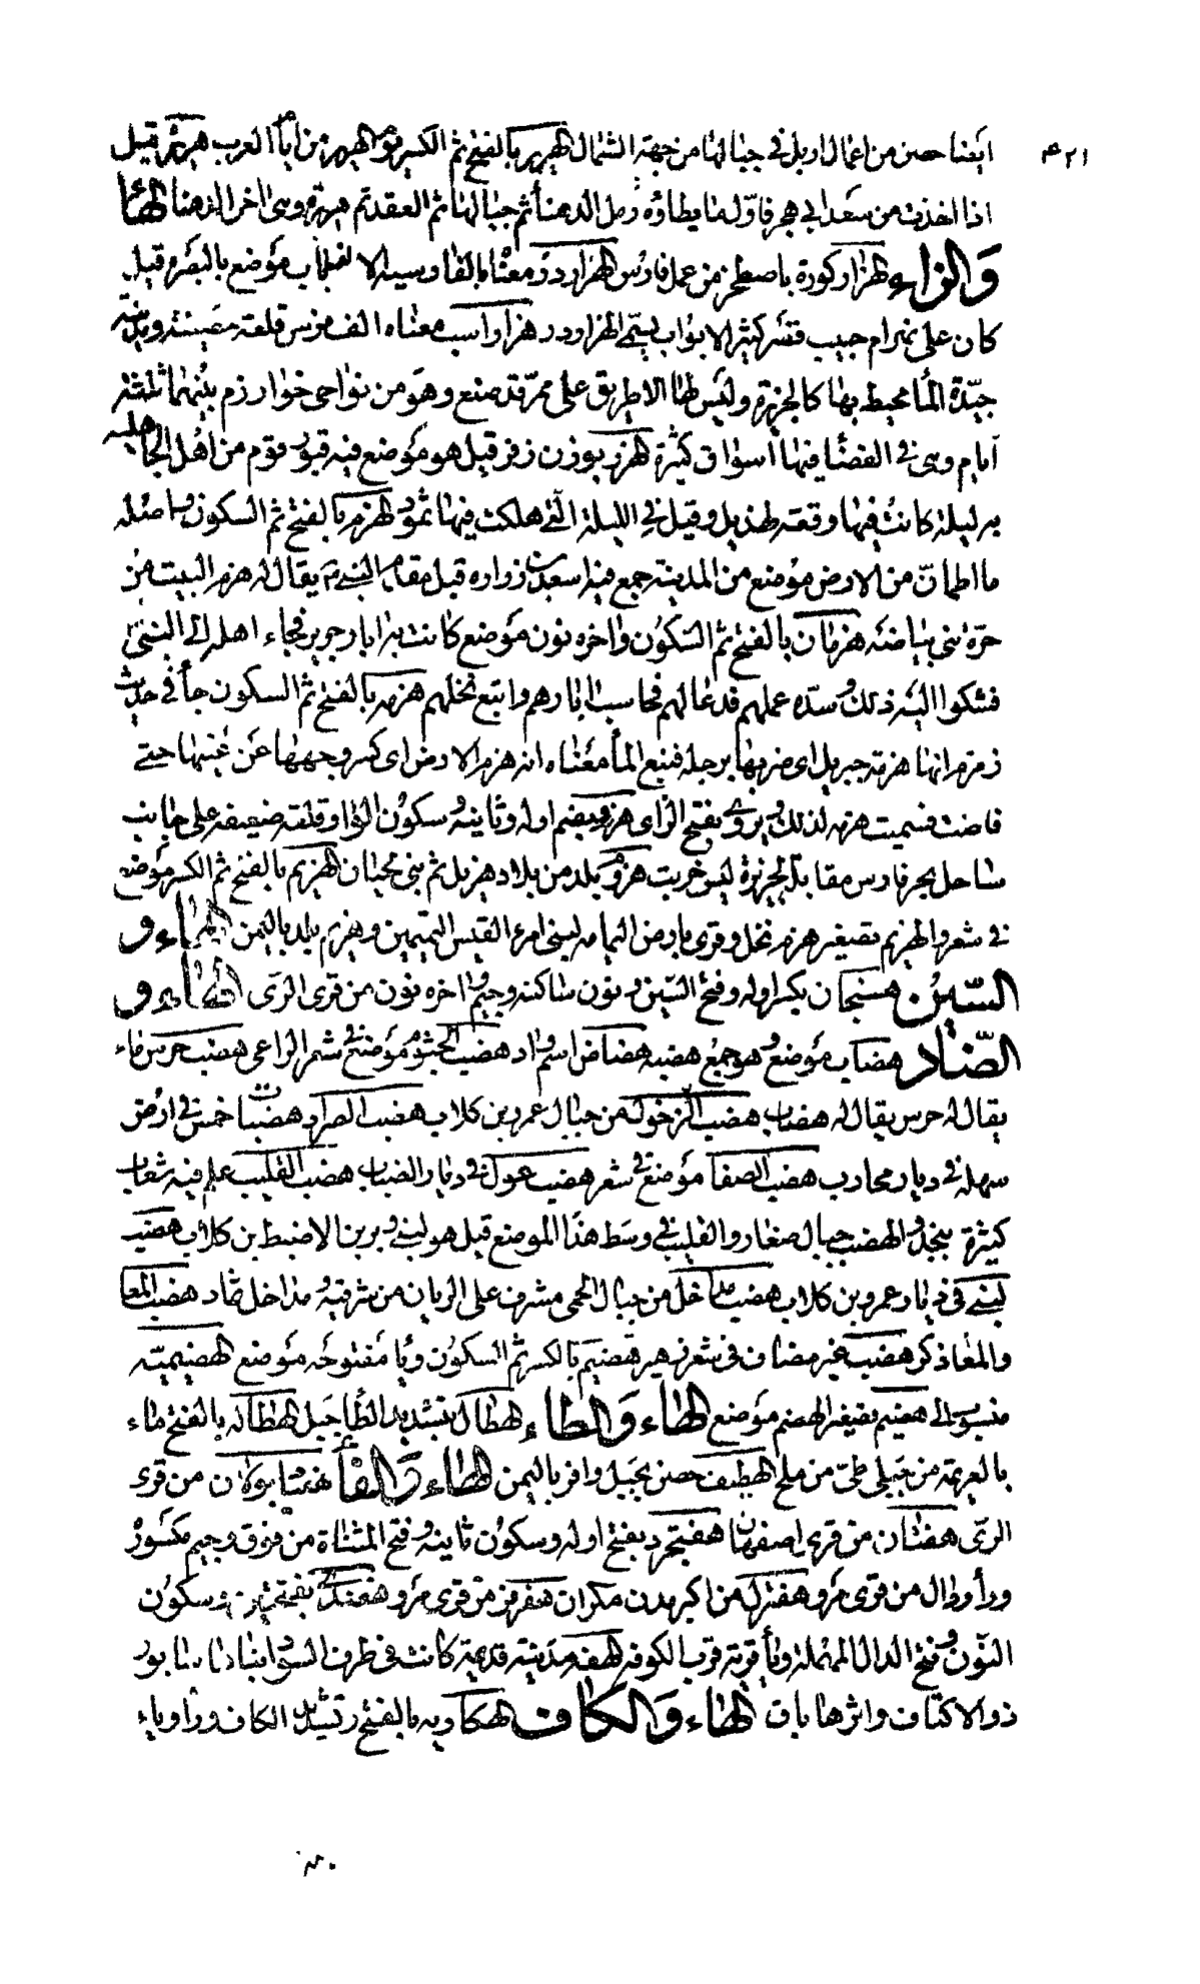 ٤٢١
ايضا حصن من اعمال اربل فى جبالها من جهة الشمال الهرير بالفتح ثم الكسر يوم الهرير من ايام العرب هريرة قيل
اذا اخذت من سعد الى هجر فاول ما يطاؤه رمل الدهنا ثم جبالها ثم العقد ثم هريرة وهى اخر الدهنا الهاء
والزاء هزار كورة باصطخر من عمل فارس الهزاردر معناه بالفارسية الالف باب موضع بالبصرة قيل
كان على نهر ام حبيب قصر كثير الابواب يسمى الهزاردر هزاراسب معناه الف فرس قلعة حصينة ومدينة
جيدة الماء محيط بها كالجزيرة وليس لها الا طريق على ممر قد صنع وهو من نواحى خوارزم بينهما ثلثة
ايام وهى فى الفضا فيها اسواق كثيرة الهزر بوزن زفر قيل هو موضع فيه قبور قوم من اهل الجاهلية
به ليلة كانت فيها وقعة لهذيل وقيل فى الليلة التى هلكت فيها ثمود الهزم بالفتح ثم السكون واصله
ما اطمان من الارض موضع من المدينة جمع فيه اسعد بن زراره قبل مقام النبى يقال له هزم البيت من
حره بنى بياضه هزمان بالفتح ثم السكون واخره نون موضع كانت به ابار فجاء اهله الى النبى
فشكوا اليه ذلك وشده عملهم فدعا لهم ابارهم نخلهم هزمه بالفتح ثم السكون جا فى حديث
زمزم انها هزمة جبريل اى ضربها برجله فنبع الما معناه انه هزم الارض اى كسر وجهها عن عينها حتى
فاضت فسميت هزمه لذلك ويروى بفتح الزاى هزو بضم اوله وثانيه وسكون الواو قلعة ضعيفه على جانب
ساحل بحر فارس مقابلة لجزيرة خربت هزوم بلد من بلاد هذيل ثم بنى لحيان الهزيم بالفتح ثم الكسر موضع
فى شعر والهزيم تصغير هزم نخل وقرى بارض اليمامه لبنى امرء القيس التميمين وهزيم بلد باليمن الهاء و
السين هسنجان بكسر اوله وفتح السين ونون ساكنه وجيم واخره نون من قرى الرى الهاء و
الضاد هضاب موضع وهو جمع هضبه هضاض اسم واد هضب موضع فى شعر الراعى هضب حرس ماء
يقال له حرس يقال له هضاب هضب الدخول من جبال عمرو بن كلاب هضب الصراد هضبات خمس فى ارض
سهله فى ديار محارب هضب الصفا موضع فى شعر هضب غول فى ديار الضباب هضب القليب علم فيه شعاب
كثيرة بنجد والهضب جبال صغار والقليب فى وسط هذا الموضع قيل هو لبنى وبر بن الاضبط بن كلاب هضب
لبنى فى ديار عمرو بن كلاب هضب مداخل من جبال الحمى مشرف على الريان من شرقيه مداخل ثماد هضب المعا
والمعا ذكر هضب غير مضاف فى شعر زهير هضيم بالكسر ثم السكون ويا مفتوحه موضع الهضيمية
منسوب الى هضيم تصغير الهضم موضع الهاء والطاء الهطال بتشديد الطا جبل الهطاله بالفتح ماء
بالعريمة من جبلى طى من ملح الهطيف حصن بجبل وافر باليمن الهاء والفاء هفتابولان من قرى
الرى هفتان من قرى اصفهان هفتجرد بفتح اوله وسكون ثانيه وفتح المثناة من فوق وجيم مكسورة
ورا ودال من قرى مرو هفترك من اكبر مدن مكران هفرفر من قرى مرو هفندى بفتحتين وسكون
النون وفتح الدال المهملة ويا قرية قرب الكوفه الهفه مدينة قديمة كانت فى طرف السواد بناها سابور
ذوالاكتاف واثرها باق الهاء والكاف الهكاريه بالفتح وتشديد الكاف ورا وياء